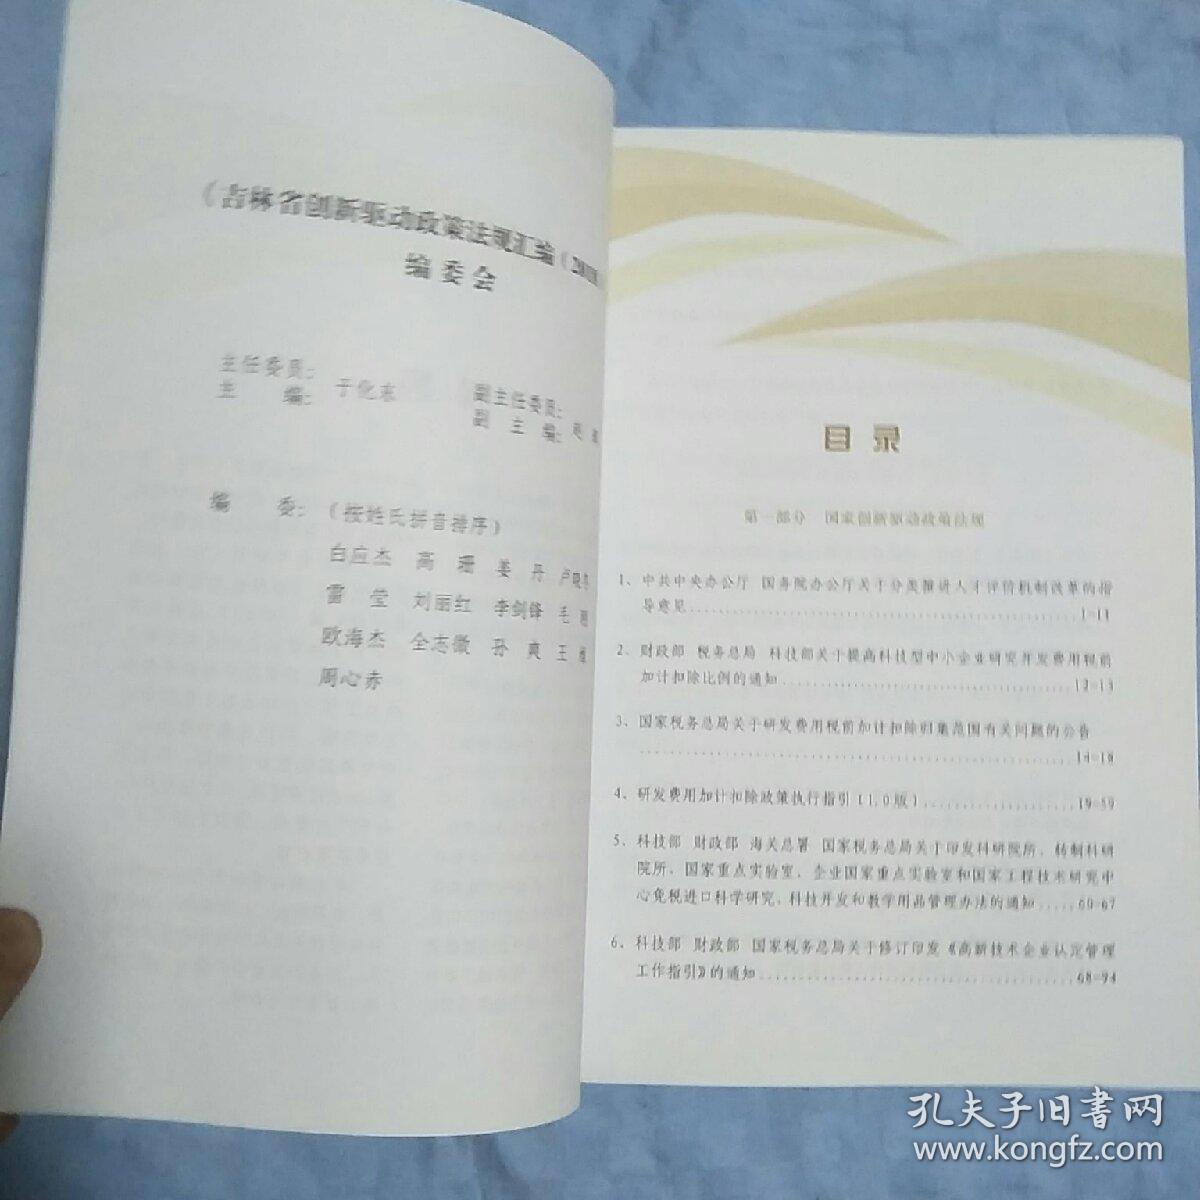 《吉林省创新驱动政策法规汇编(2018
编委会
主任委员:
主 编: 于化东
副主任委员:
副 主 编: 赵
编 委: (按姓氏拼音排序)
白应杰 高 珊 姜 丹 卢晓
雷 莹 刘丽红 李剑锋 毛
欧海杰 全志微 孙 爽 王
周心赤
目录
第一部分 国家创新驱动政策法规
1、中共中央办公厅 国务院办公厅关于分类推进人才评价机制改革的指
导意见 1-11
2、财政部 税务总局 科技部关于提高科技型中小企业研究开发费用税前
加计扣除比例的通知 12-13
3、国家税务总局关于研发费用税前加计扣除归集范围有关问题的公告
14-18
4、研发费用加计扣除政策执行指引(1.0版) 19-59
5、科技部 财政部 海关总署 国家税务总局关于印发科研院所、转制科研
院所、国家重点实验室、企业国家重点实验室和国家工程技术研究中
心免税进口科学研究、科技开发和教学用品管理办法的通知 60-67
6、科技部 财政部 国家税务总局关于修订印发《高新技术企业认定管理
工作指引》的通知 68-94
孔夫子旧书网
www.kongfz.com